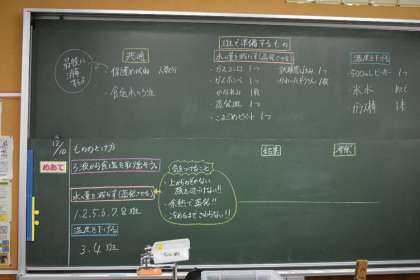 最後に
消毒
する
共通
・保護めがね 人数分
・食塩水のろ液
1班で準備するもの
水の量を減らす(蒸発させる)
・ガスコンロ 1つ
・ガスボンベ 1つ
・かなあみ 1枚
・蒸発皿 1つ
・こまごめピペット 1つ
1つ
1枚
温度を下げる
・500mLビーカー 1つ
・氷水
・ガラス棒 1本
12/10
もののとけ方
めあて
ろ液から食塩を取り出そう。
水の量を減らす(蒸発させる)
1.2.5.6.7.8班
温度を下げる
3.4班
気をつけること
・上からのぞかない
顔を近づけない!!
・余熱で蒸発!!
・冷めるまでさわらない!!
結果
考察